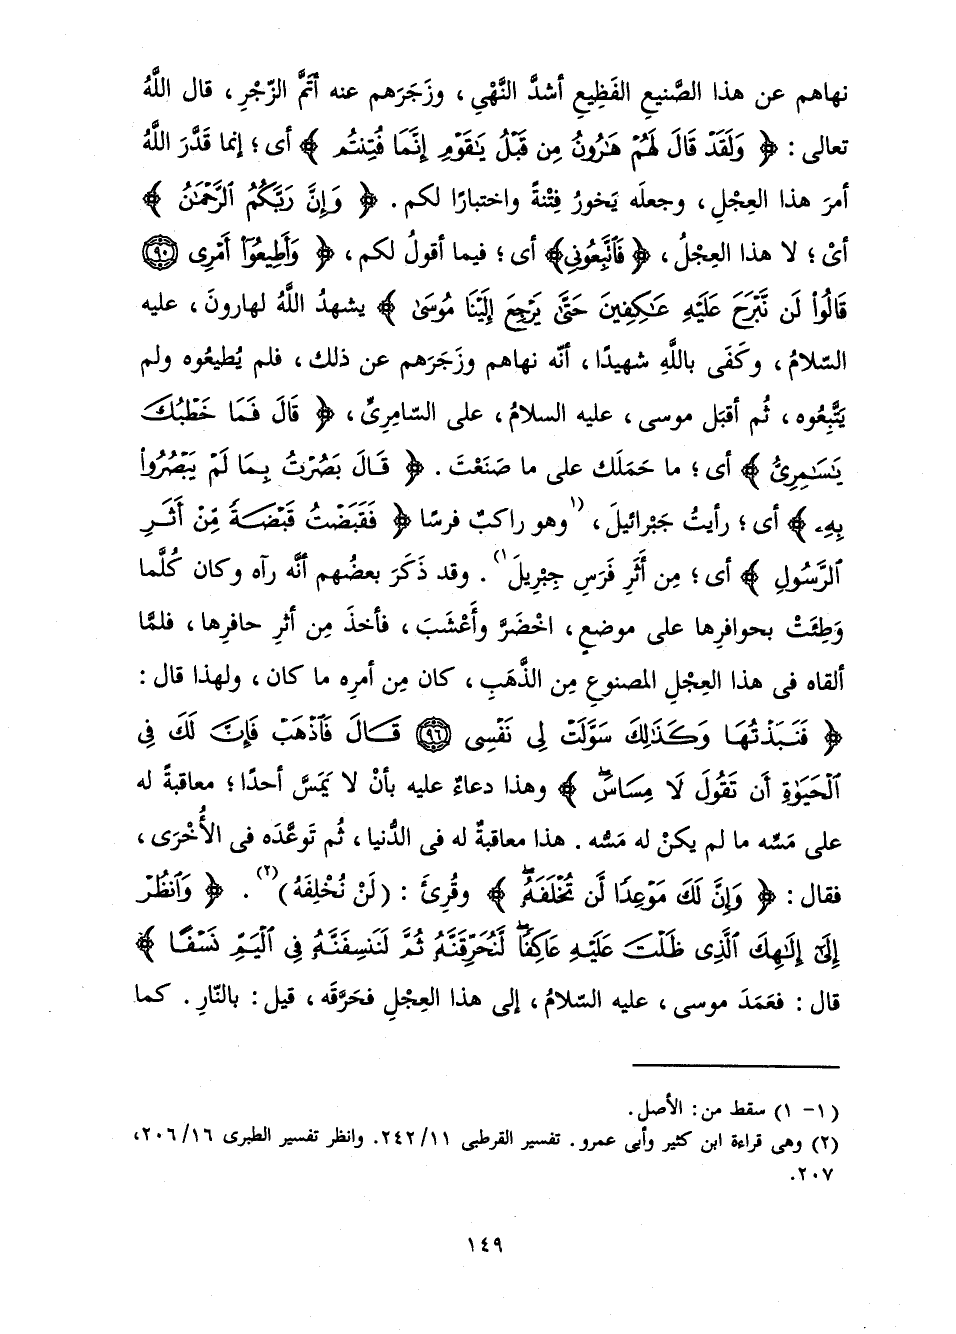 نهاهم عن هذا الصَّنيعِ الفَظِيعِ أشدَّ النَّهْيِ ، وزَجَرَهم عنه أتَمَّ الزّجْرِ ، قال اللَّهُ
تعالى : ﴿ وَلَقَدْ قَالَ لَهُمْ هَٰرُونُ مِن قَبْلُ يَٰقَوْمِ إِنَّمَا فُتِنتُم ﴾ أى ؛ إنما قَدَّرَ اللَّهُ
أمرَ هذا العِجْلِ ، وجعلَه يَخورُ فِتْنةً واختبارًا لكم . ﴿ وَإِنَّ رَبَّكُمُ ٱلرَّحْمَٰنُ ﴾
أىْ ؛ لا هذا العِجْلُ ، ﴿ فَٱتَّبِعُونِي﴾ أى ؛ فيما أقولُ لكم ، ﴿ وَأَطِيعُوٓا۟ أَمْرِى ۝٩٠
قَالُوا۟ لَن نَّبْرَحَ عَلَيْهِ عَٰكِفِينَ حَتَّىٰ يَرْجِعَ إِلَيْنَا مُوسَىٰ ﴾ يشهدُ اللَّهُ لهارونَ ، عليه
السّلامُ ، وكَفَى باللَّهِ شهيدًا ، أنّه نهاهم وزَجَرَهم عن ذلك ، فلم يُطيعُوه ولم
يَتَّبِعُوه ، ثُم أقبَل موسى ، عليه السلامُ ، على السّامِرِىِّ ، ﴿ قَالَ فَمَا خَطْبُكَ
يَٰسَٰمِرِىُّ ﴾ أى ؛ ما حَمَلَك على ما صَنَعْتَ . ﴿ قَالَ بَصُرْتُ بِمَا لَمْ يَبْصُرُوا۟
بِهِۦ ﴾ أى ؛ رأيتُ جَبْرائيلَ ، (١ وهو راكبٌ فرسًا ﴿ فَقَبَضْتُ قَبْضَةً مِّنْ أَثَرِ
ٱلرَّسُولِ ﴾ أى ؛ مِن أَثَرِ فَرَسِ جِبْرِيلَ ١) . وقد ذَكَرَ بعضُهم أنَّه رآه وكان كُلَّما
وَطِئَتْ بحوافرِها على موضعٍ ، اخْضَرَّ وأَعْشَبَ ، فأخذَ مِن أثرِ حافرِها ، فلمَّا
ألقاه فى هذا العِجْلِ المصنوعِ مِن الذَّهَبِ ، كان مِن أمرِه ما كان ، ولهذا قال :
﴿ فَنَبَذْتُهَا وَكَذَٰلِكَ سَوَّلَتْ لِى نَفْسِى ۝٩٦ قَالَ فَٱذْهَبْ فَإِنَّ لَكَ فِى
ٱلْحَيَوٰةِ أَن تَقُولَ لَا مِسَاسَۖ ﴾ وهذا دعاءٌ عليه بأنْ لا يَمَسَّ أحدًا ؛ معاقبةً له
على مَسِّه ما لم يكنْ له مَسُّه . هذا معاقبةٌ له فى الدُّنيا ، ثُم تَوعَّدَه فى الأُخْرَى ،
فقال : ﴿ وَإِنَّ لَكَ مَوْعِدًا لَّن تُخْلَفَهُۥۖ ﴾ وقُرِئَ : ( لَنْ نُخْلِفَهُ )(٢) . ﴿ وَٱنظُرْ
إِلَىٰٓ إِلَٰهِكَ ٱلَّذِى ظَلْتَ عَلَيْهِ عَاكِفًاۖ لَّنُحَرِّقَنَّهُۥ ثُمَّ لَنَنسِفَنَّهُۥ فِى ٱلْيَمِّ نَسْفًا ﴾
قال : فعَمَدَ موسى ، عليه السّلامُ ، إلى هذا العِجْلِ فحَرَّقَه ، قيل : بالنّارِ . كما
(١- ١) سقط من : الأصل .
(٢) وهى قراءة ابن كثير وأبى عمرو . تفسير القرطبى ٢٤٢/١١. وانظر تفسير الطبرى ٢٠٦/١٦،
٢٠٧.
١٤٩